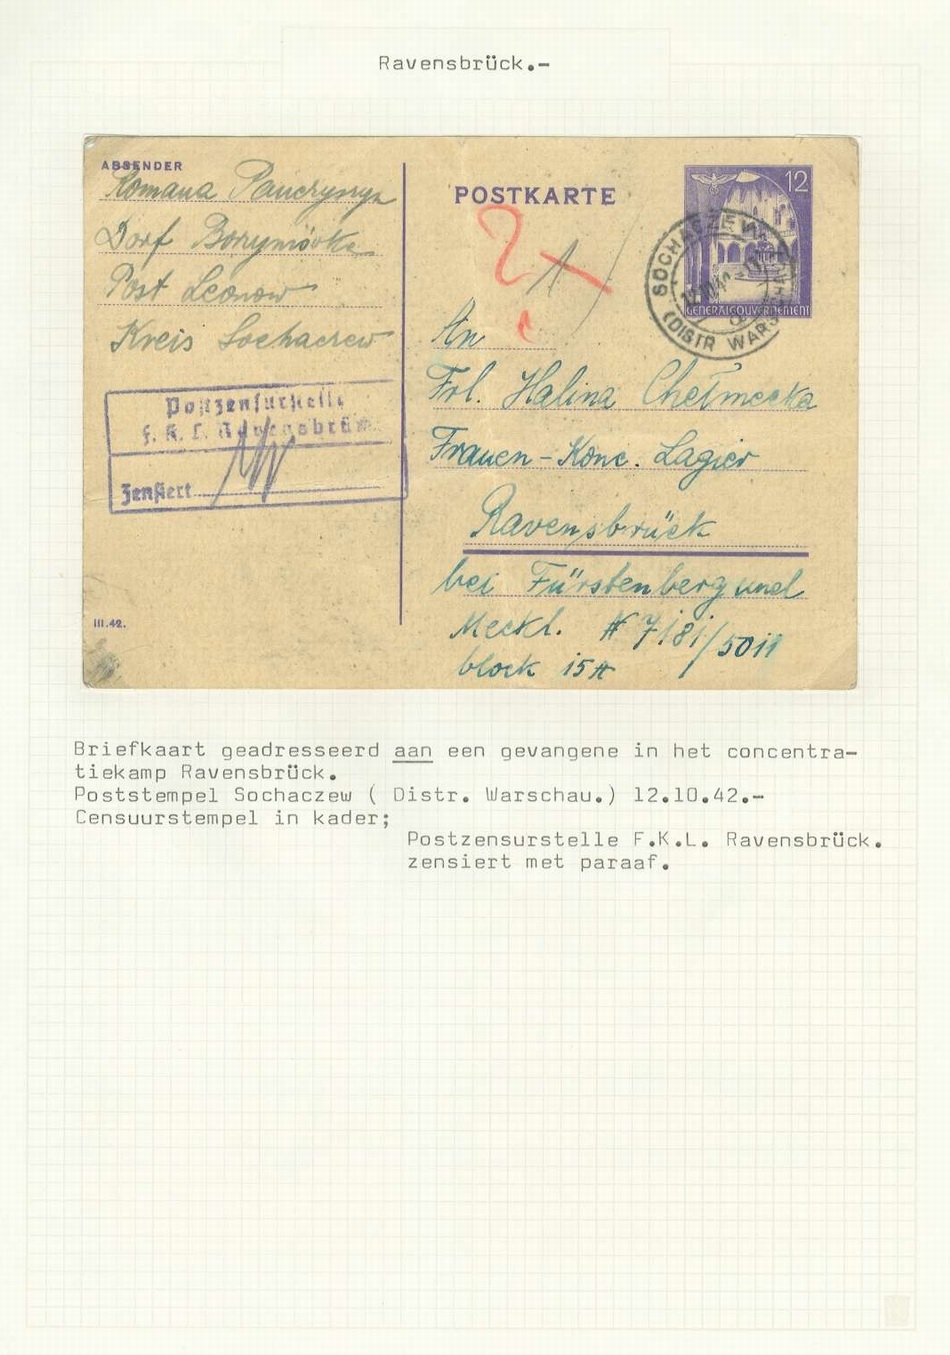 Ravensbrück.-
ABSENDER
Romana
Dorf
Post Leonow
Kreis Sochaczew
POSTKARTE
12
GENERALGOUVERNEMENT
SOCHACZEW
(DISTR WARSCHAU)
An
Frl. Halina Chełmecka
Frauen-Konc. Lagier
Ravensbrück
bei Fürstenberg und
Meckl. N 7181/5011
block 15A
Postzensurstelle
F. K. L. Ravensbrück
Zensiert
III.42.
Briefkaart geadresseerd aan een gevangene in het concentra-
tiekamp Ravensbrück.
Poststempel Sochaczew ( Distr. Warschau.) 12.10.42.-
Censuurstempel in kader;
Postzensurstelle F.K.L. Ravensbrück.
zensiert met paraaf.